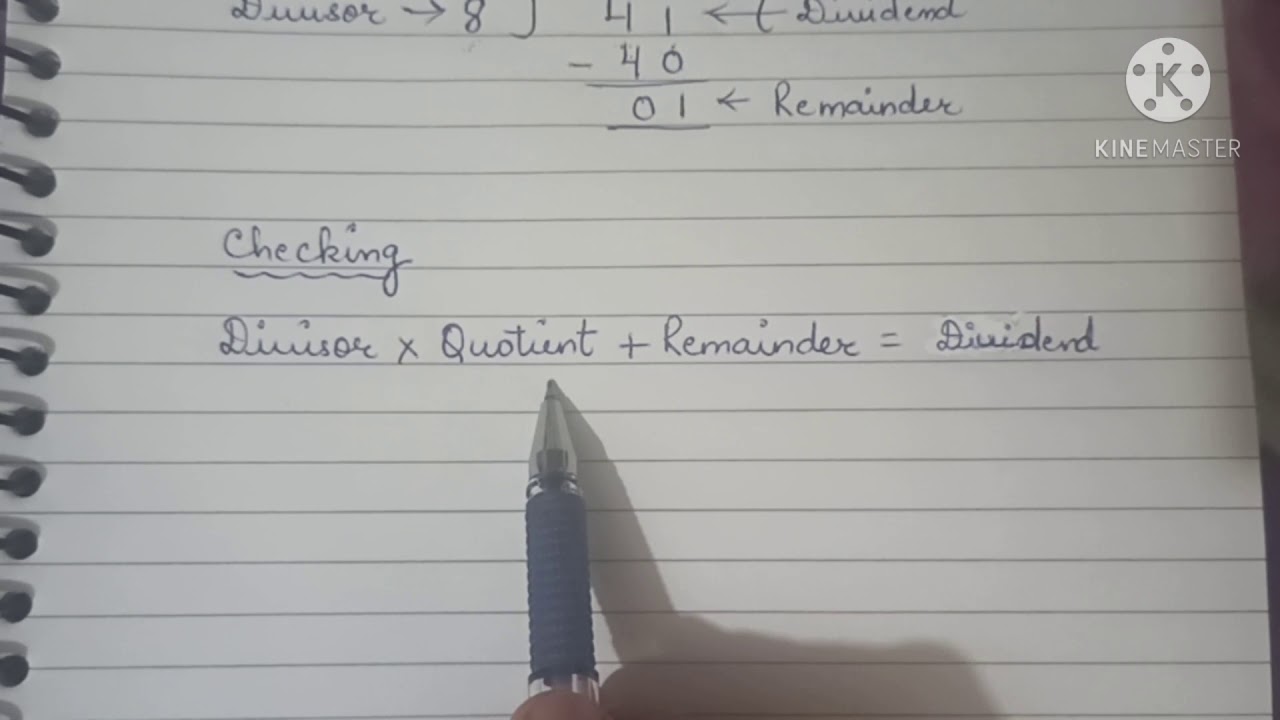 Divisor → 8 ) 41 ← Dividend
- 40
01 ← Remainder
K
KINEMASTER
Checking
Divisor x Quotient + Remainder = Dividend